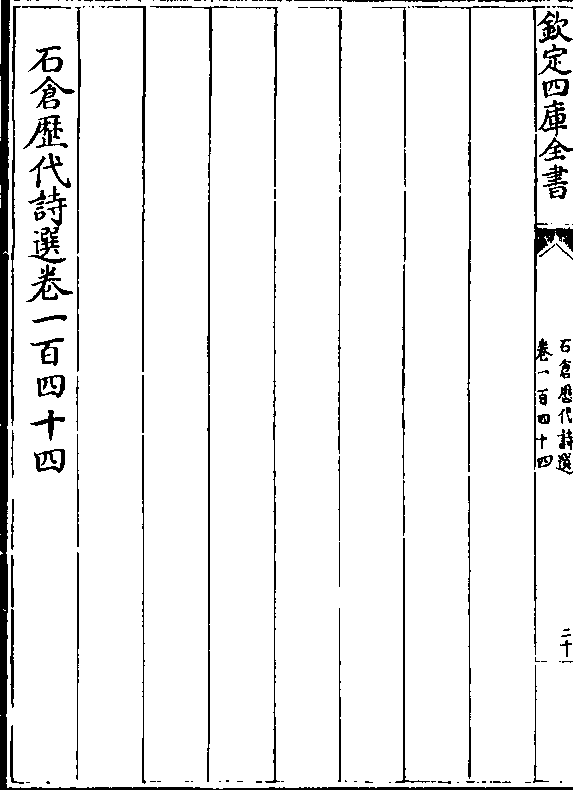 欽定四庫全書
石倉歴代詩選
卷一百四十四
二十
石倉歴代詩選卷一百四十四